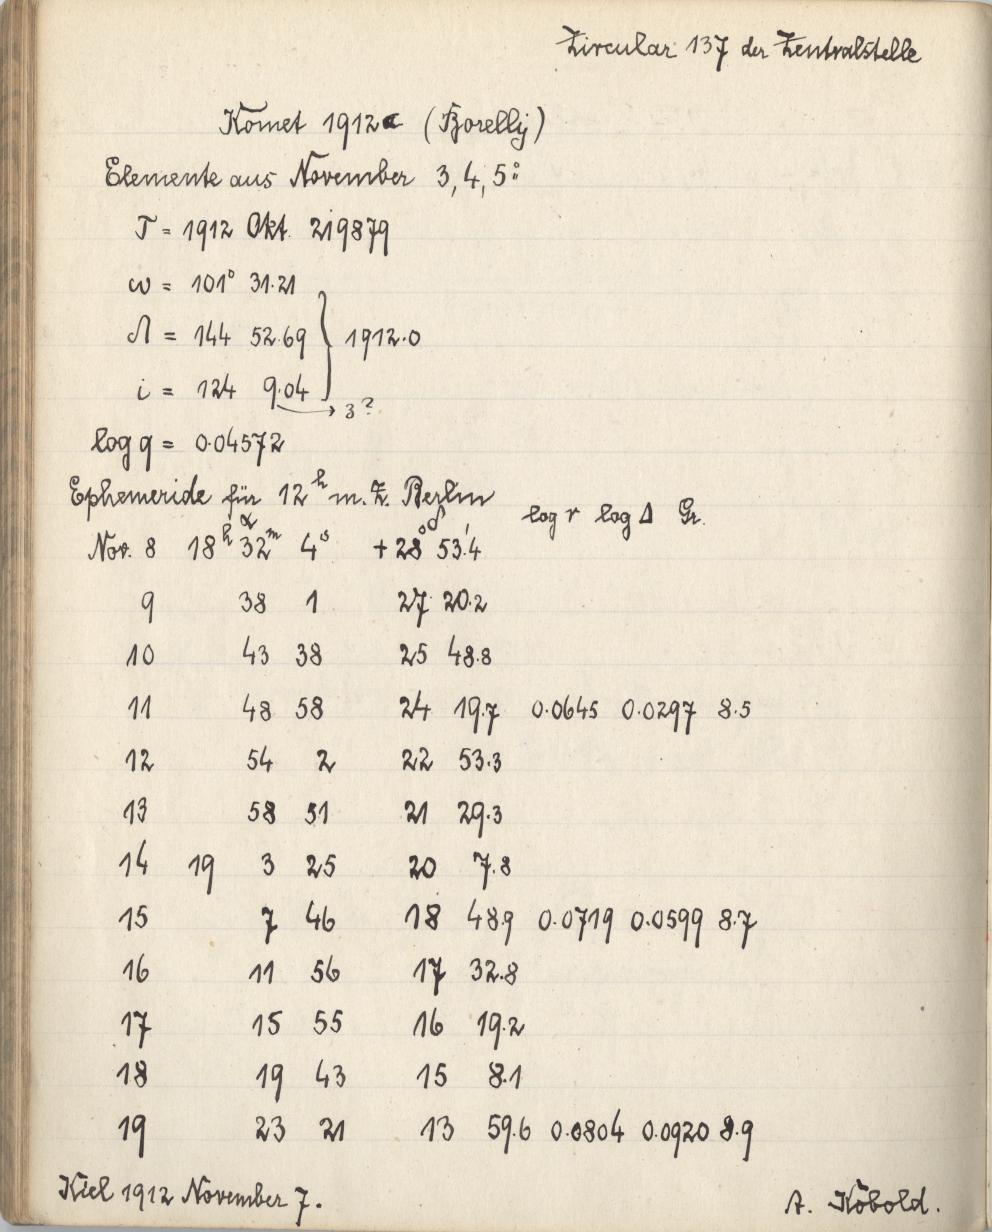 Zircular 137 der Zentralstelle
Komet 1912c (Borelly)
Elemente aus November 3, 4, 5:
T = 1912 Okt. 219879
ω = 101° 31.21
Ω = 144 52.69 } 1912.0
i = 124 9.04
→ 3?
log q = 0.04572
Ephemeride für 12h m. Z. Berlin
α δ log r log Δ Gr.
Nov. 8 18h 32m 4s +28° 53.'4
9 38 1 27 20.2
10 43 38 25 48.8
11 48 58 24 19.7 0.0645 0.0297 8.5
12 54 2 22 53.3
13 58 51 21 29.3
14 19 3 25 20 7.8
15 7 46 18 48.9 0.0719 0.0599 8.7
16 11 56 17 32.8
17 15 55 16 19.2
18 19 43 15 8.1
19 23 21 13 59.6 0.0804 0.0920 8.9
Kiel 1912 November 7. A. Kobold.